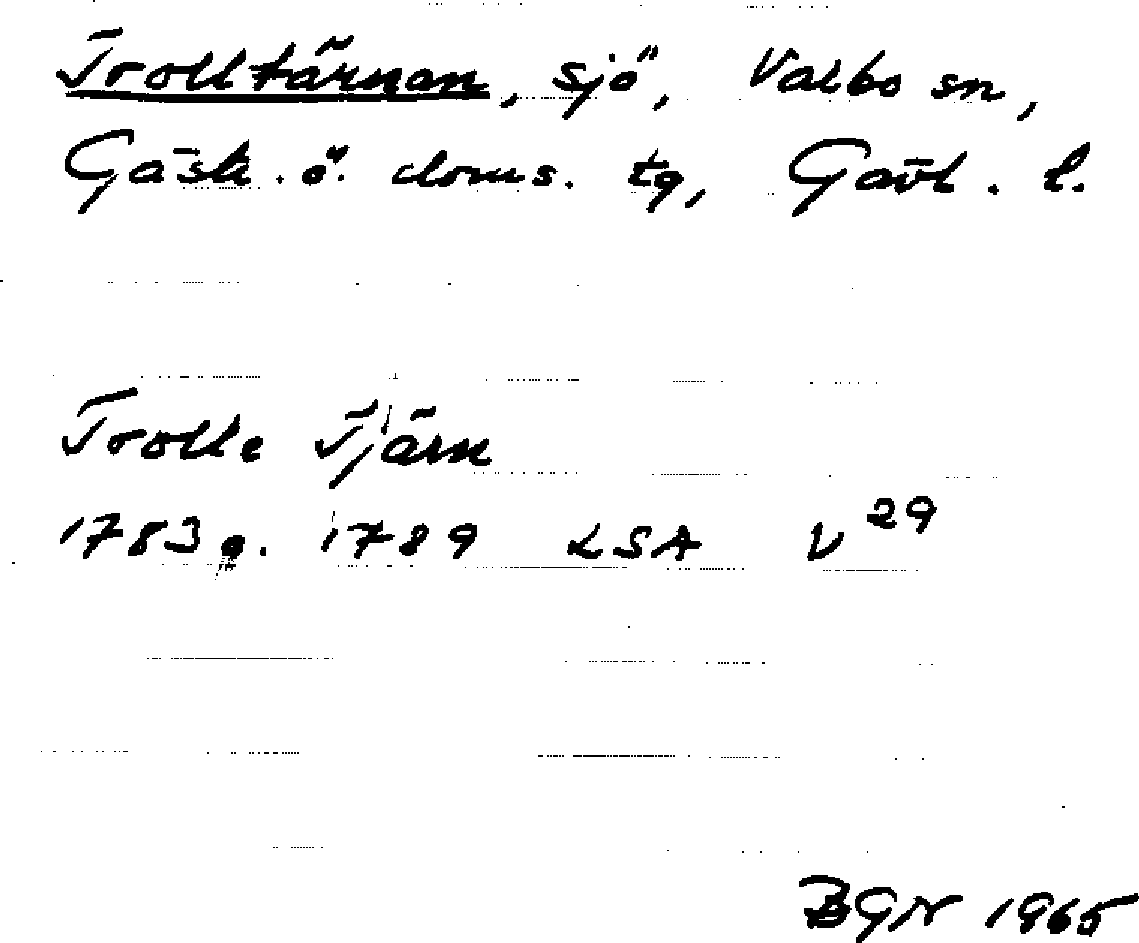 Trolltärnan, sjö, Valbo sn,
Gäst. ö. doms. tg, Gävl. l.
Trolle Tjärn
1783 o. 1789 LSA V 29
BGN 1965